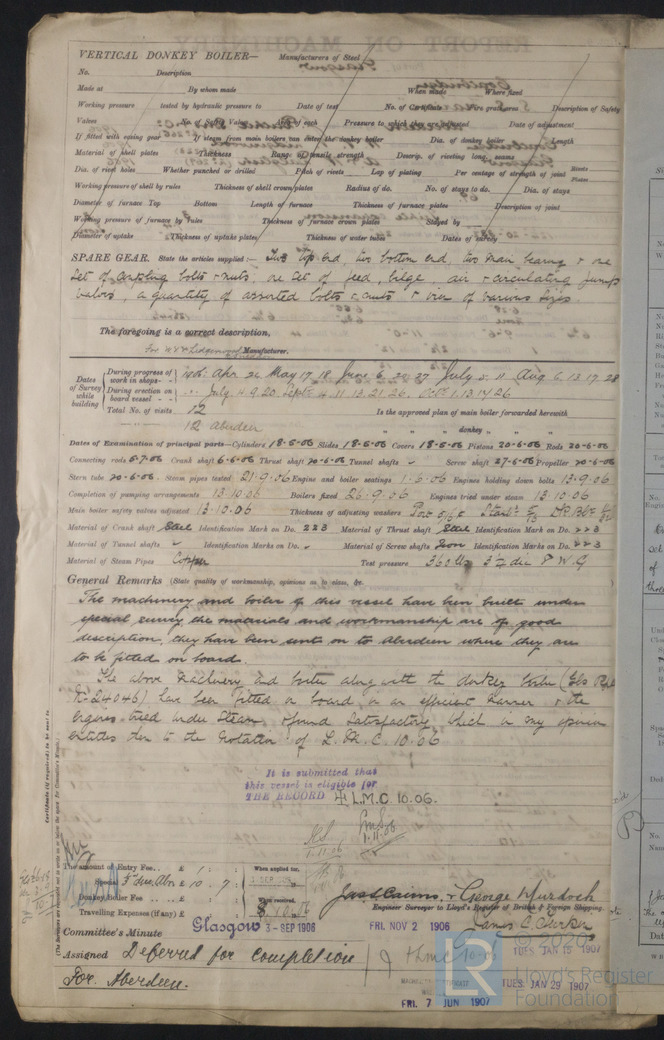 VERTICAL DONKEY BOILER— Manufacturers of Steel
No. Description
Made at By whom made When made Where fixed
Working pressure tested by hydraulic pressure to Date of test No. of Certificate Fire grate area Description of Safety
Valves No. of Safety Valves Area of each Pressure to which they are adjusted Date of adjustment
If fitted with easing gear If steam from main boilers can enter the donkey boiler Dia. of donkey boiler Length
Material of shell plates Thickness Range of tensile strength Descrip. of riveting long. seams
Dia. of rivet holes Whether punched or drilled Pitch of rivets Lap of plating Per centage of strength of joint Rivets Plates
Working pressure of shell by rules Thickness of shell crown plates Radius of do. No. of stays to do. Dia. of stays
Diameter of furnace Top Bottom Length of furnace Thickness of furnace plates Description of joint
Working pressure of furnace by rules Thickness of furnace crown plates Stayed by
Diameter of uptake Thickness of uptake plates Thickness of water tubes Dates of survey
SPARE GEAR. State the articles supplied:— Two top end, two bottom end, two main bearing & one
set of coupling bolts & nuts. one set of feed, bilge, air & circulating pumps
valves, a quantity of assorted bolts & nuts & iron of various sizes.
The foregoing is a correct description,
Manufacturer.
Dates of Survey while building
During progress of work in shops-- 1906. Apr 26 May 17 18 June 6. 20. 27 July 5. 11 Aug 6. 13. 17. 28
During erection on board vessel--- July 4. 9. 20. Sept 4. 11. 13. 21. 26. Oct 1. 13. 14. 26
Total No. of visits 12 Is the approved plan of main boiler forwarded herewith
12 Aberdeen " " donkey " " "
Dates of Examination of principal parts—Cylinders 18-6-06 Slides 18-6-06 Covers 18-6-06 Pistons 20-6-06 Rods 20-6-06
Connecting rods 5-7-06 Crank shaft 6-6-06 Thrust shaft 20-6-06 Tunnel shafts Screw shaft 27-6-06 Propeller 20-6-06
Stern tube 20-6-06. Steam pipes tested 21.9.06 Engine and boiler seatings 1.6.06 Engines holding down bolts 13.9.06
Completion of pumping arrangements 13.10.06 Boilers fixed 26.9.06 Engines tried under steam 13.10.06
Main boiler safety valves adjusted 13.10.06 Thickness of adjusting washers
Material of Crank shaft Steel Identification Mark on Do. 223 Material of Thrust shaft Steel Identification Mark on Do. 223
Material of Tunnel shafts Identification Marks on Do. Material of Screw shafts Iron Identification Marks on Do. 223
Material of Steam Pipes Copper Test pressure 360 lbs
General Remarks (State quality of workmanship, opinions as to class, &c.
The machinery and boiler of this vessel have been built under
special survey the materials and workmanship are of good
description, they have been sent on to Aberdeen where they are
to be fitted on board.
The above machinery and boiler along with the donkey boiler
24046) have been fitted on board in an efficient manner & the
engines tried under steam & found satisfactory, which in my opinion
entitles her to the notation of L.M.C. 10.06
It is submitted that
this vessel is eligible for
THE RECORD L.M.C. 10.06.
The amount of Entry Fee.. £ When applied for,
Special £ 10 : 7
Donkey Boiler Fee £ When received,
Travelling Expenses (if any) £
Jas. Cairns, & George Murdoch
Engineer Surveyor to Lloyd's Register of British & Foreign Shipping.
Committee's Minute Glasgow 3 - SEP 1906 FRI. NOV 2 1906
Assigned Deferred for completion TUES. JAN 15 1907
For Aberdeen. TUES. JAN 29 1907
FRI. 7 JUN 1907
© 2020
LR
Lloyd's Register
Foundation